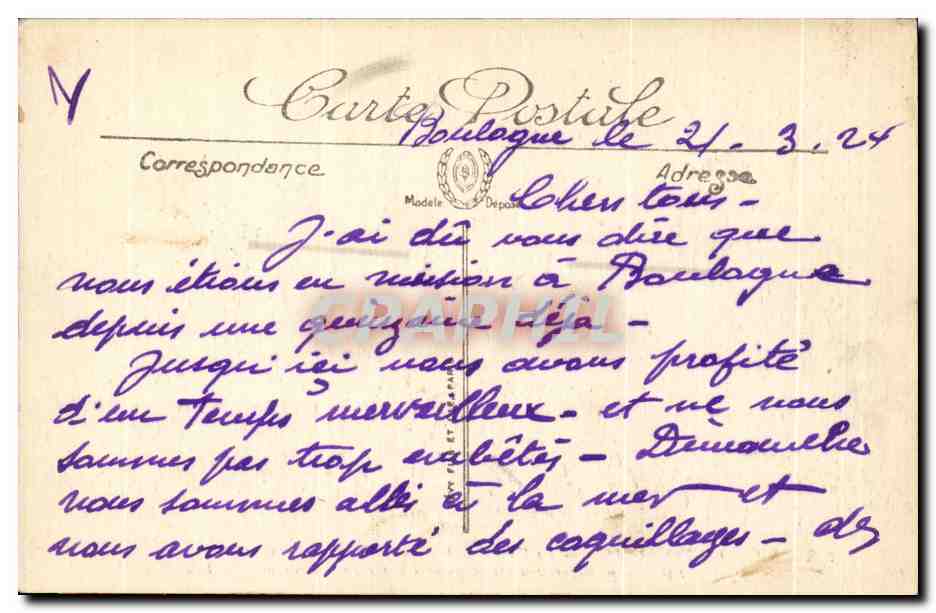 Carte Postale
Boulogne le 21.3.24
Correspondance
Adresse
Modèle Déposé
Chers tous -
J'ai dû vous dire que
nous étions en mission à Boulogne
depuis une quinzaine déjà -
CPAPHIL
Jusqu'ici nous avons profité
d'un temps merveilleux - et ne nous
sommes pas trop embêtés - Dimanche
nous sommes allés à la mer et
nous avons rapporté des coquillages - des